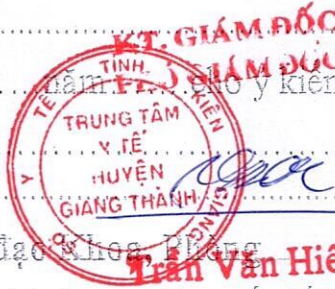 KT. GIÁM ĐỐC
PHÓ GIÁM ĐỐC
năm cho ý kiến
SỞ Y TẾ TỈNH KIÊN GIANG
TRUNG TÂM
Y TẾ
HUYỆN
GIANG THÀNH
đạo Khoa, Phòng
Trần Văn Hiế